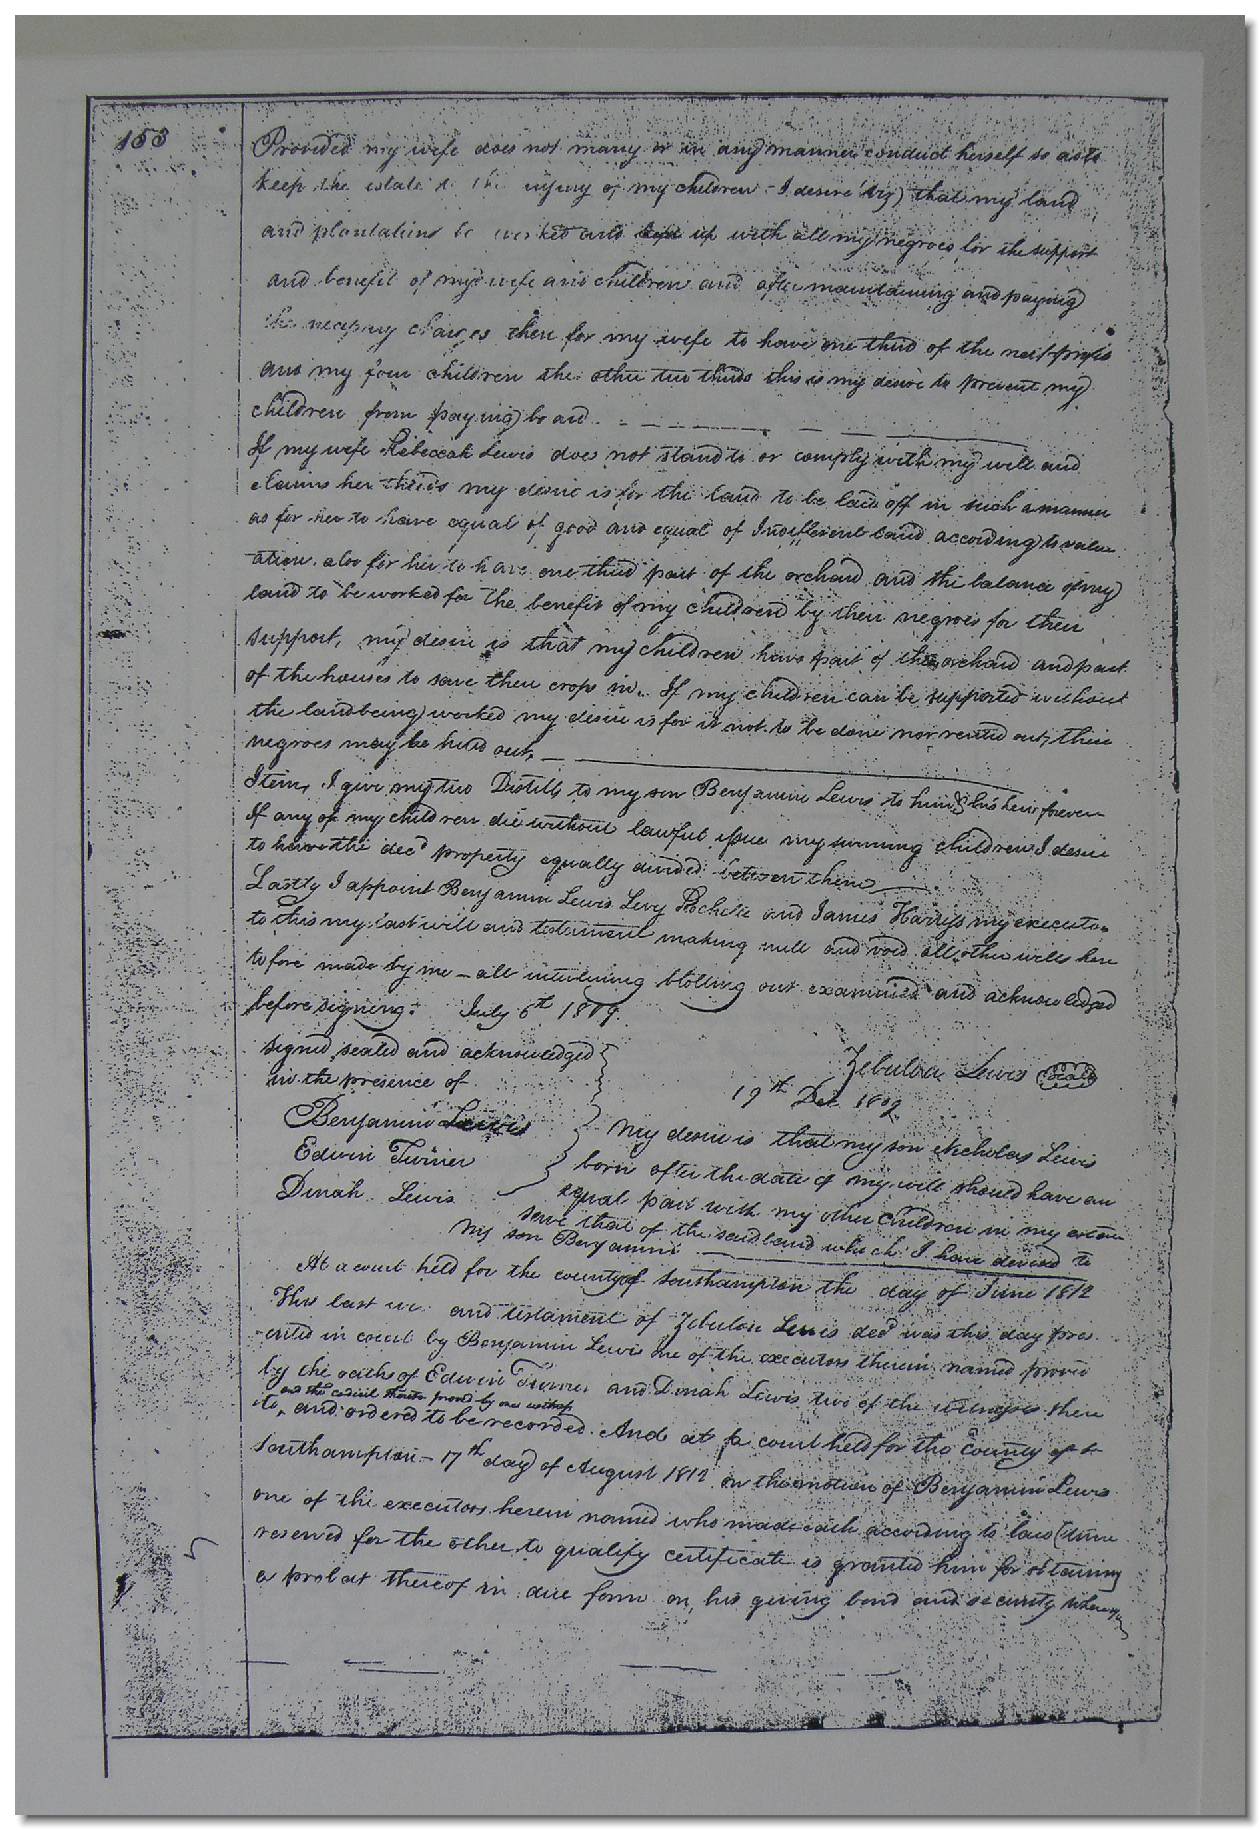 155
Provided my wife does not marry or in any manner conduct herself so as to
keep the estate to the injury of my children - I desire (viz) that my land
and plantations be worked and kept up with all my negroes for the support
and benefit of my wife and children and after maintaining and paying
the necessary charges then for my wife to have one third of the neat profits
and my four children the other two thirds this is my desire to prevent my
children from paying board
If my wife Rebeccah Lewis does not stand to or comply with my will and
claims her thirds my desire is for the land to be laid off in such a manner
as for her to have equal of good and equal of Indifferent land according to valu
ation. also for her to have one third part of the orchard and the balance of my
land to be worked for the benefit of my children by their negroes for their
support, my desire is that my children have part of the orchard and part
of the houses to save their crops in. If my children can be supported without
the land being worked my desire is for it not to be done nor rented out, their
negroes may be hired out,
Item, I give my two Distills to my son Benjamin Lewis to him & his heirs forever
If any of my children die without lawful issue my surviving children I desire
to have the decd property equally divided between them
Lastly I appoint Benjamin Lewis Levy Rochelle and James Harris my executors
to this my last will and testament making null and void all other wills here
tofore made by me - all interlining blotting out examined and acknowledged
before signing. July 6th 1809.
Signed sealed and acknowledged
in the presence of
Zebulon Lewis Seal
Benjamin Lewis
Edwin Turner
Dinah Lewis
19th Dec 1809
My desire is that my son Nicholas Lewis
born after the date of my will should have an
equal part with my other children in my estate
save that of the said land which I have devised to
my son Benjamin
At a court held for the county of Southampton the day of June 1812
This last and testament of Zebulon Lewis decd was this day pres
ented in court by Benjamin Lewis one of the executors therein named proved
by the oaths of Edwin Turner and Dinah Lewis two of the witnesses there
and the codicil thereto proved by one witness
to, and ordered to be recorded. And at a court held for the County of
Southampton - 17th day of August 1812 on the motion of Benjamin Lewis
one of the executors herein named who made oath according to law (time
reserved for the other to qualify certificate is granted him for obtaining
a probat thereof in due form on his giving bond and security